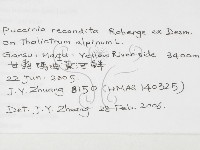 Puccinia recondita Roberge ex Desm.
on Thalictrum alpinum L.
Gansu: Maqu: Yellow River side 3400m
甘肃玛曲黄河畔
22 Jun. 2005
J.Y. Zhuang 8150 (HMAS 140325)
Det. J.Y. Zhuang 28 Feb. 2006.